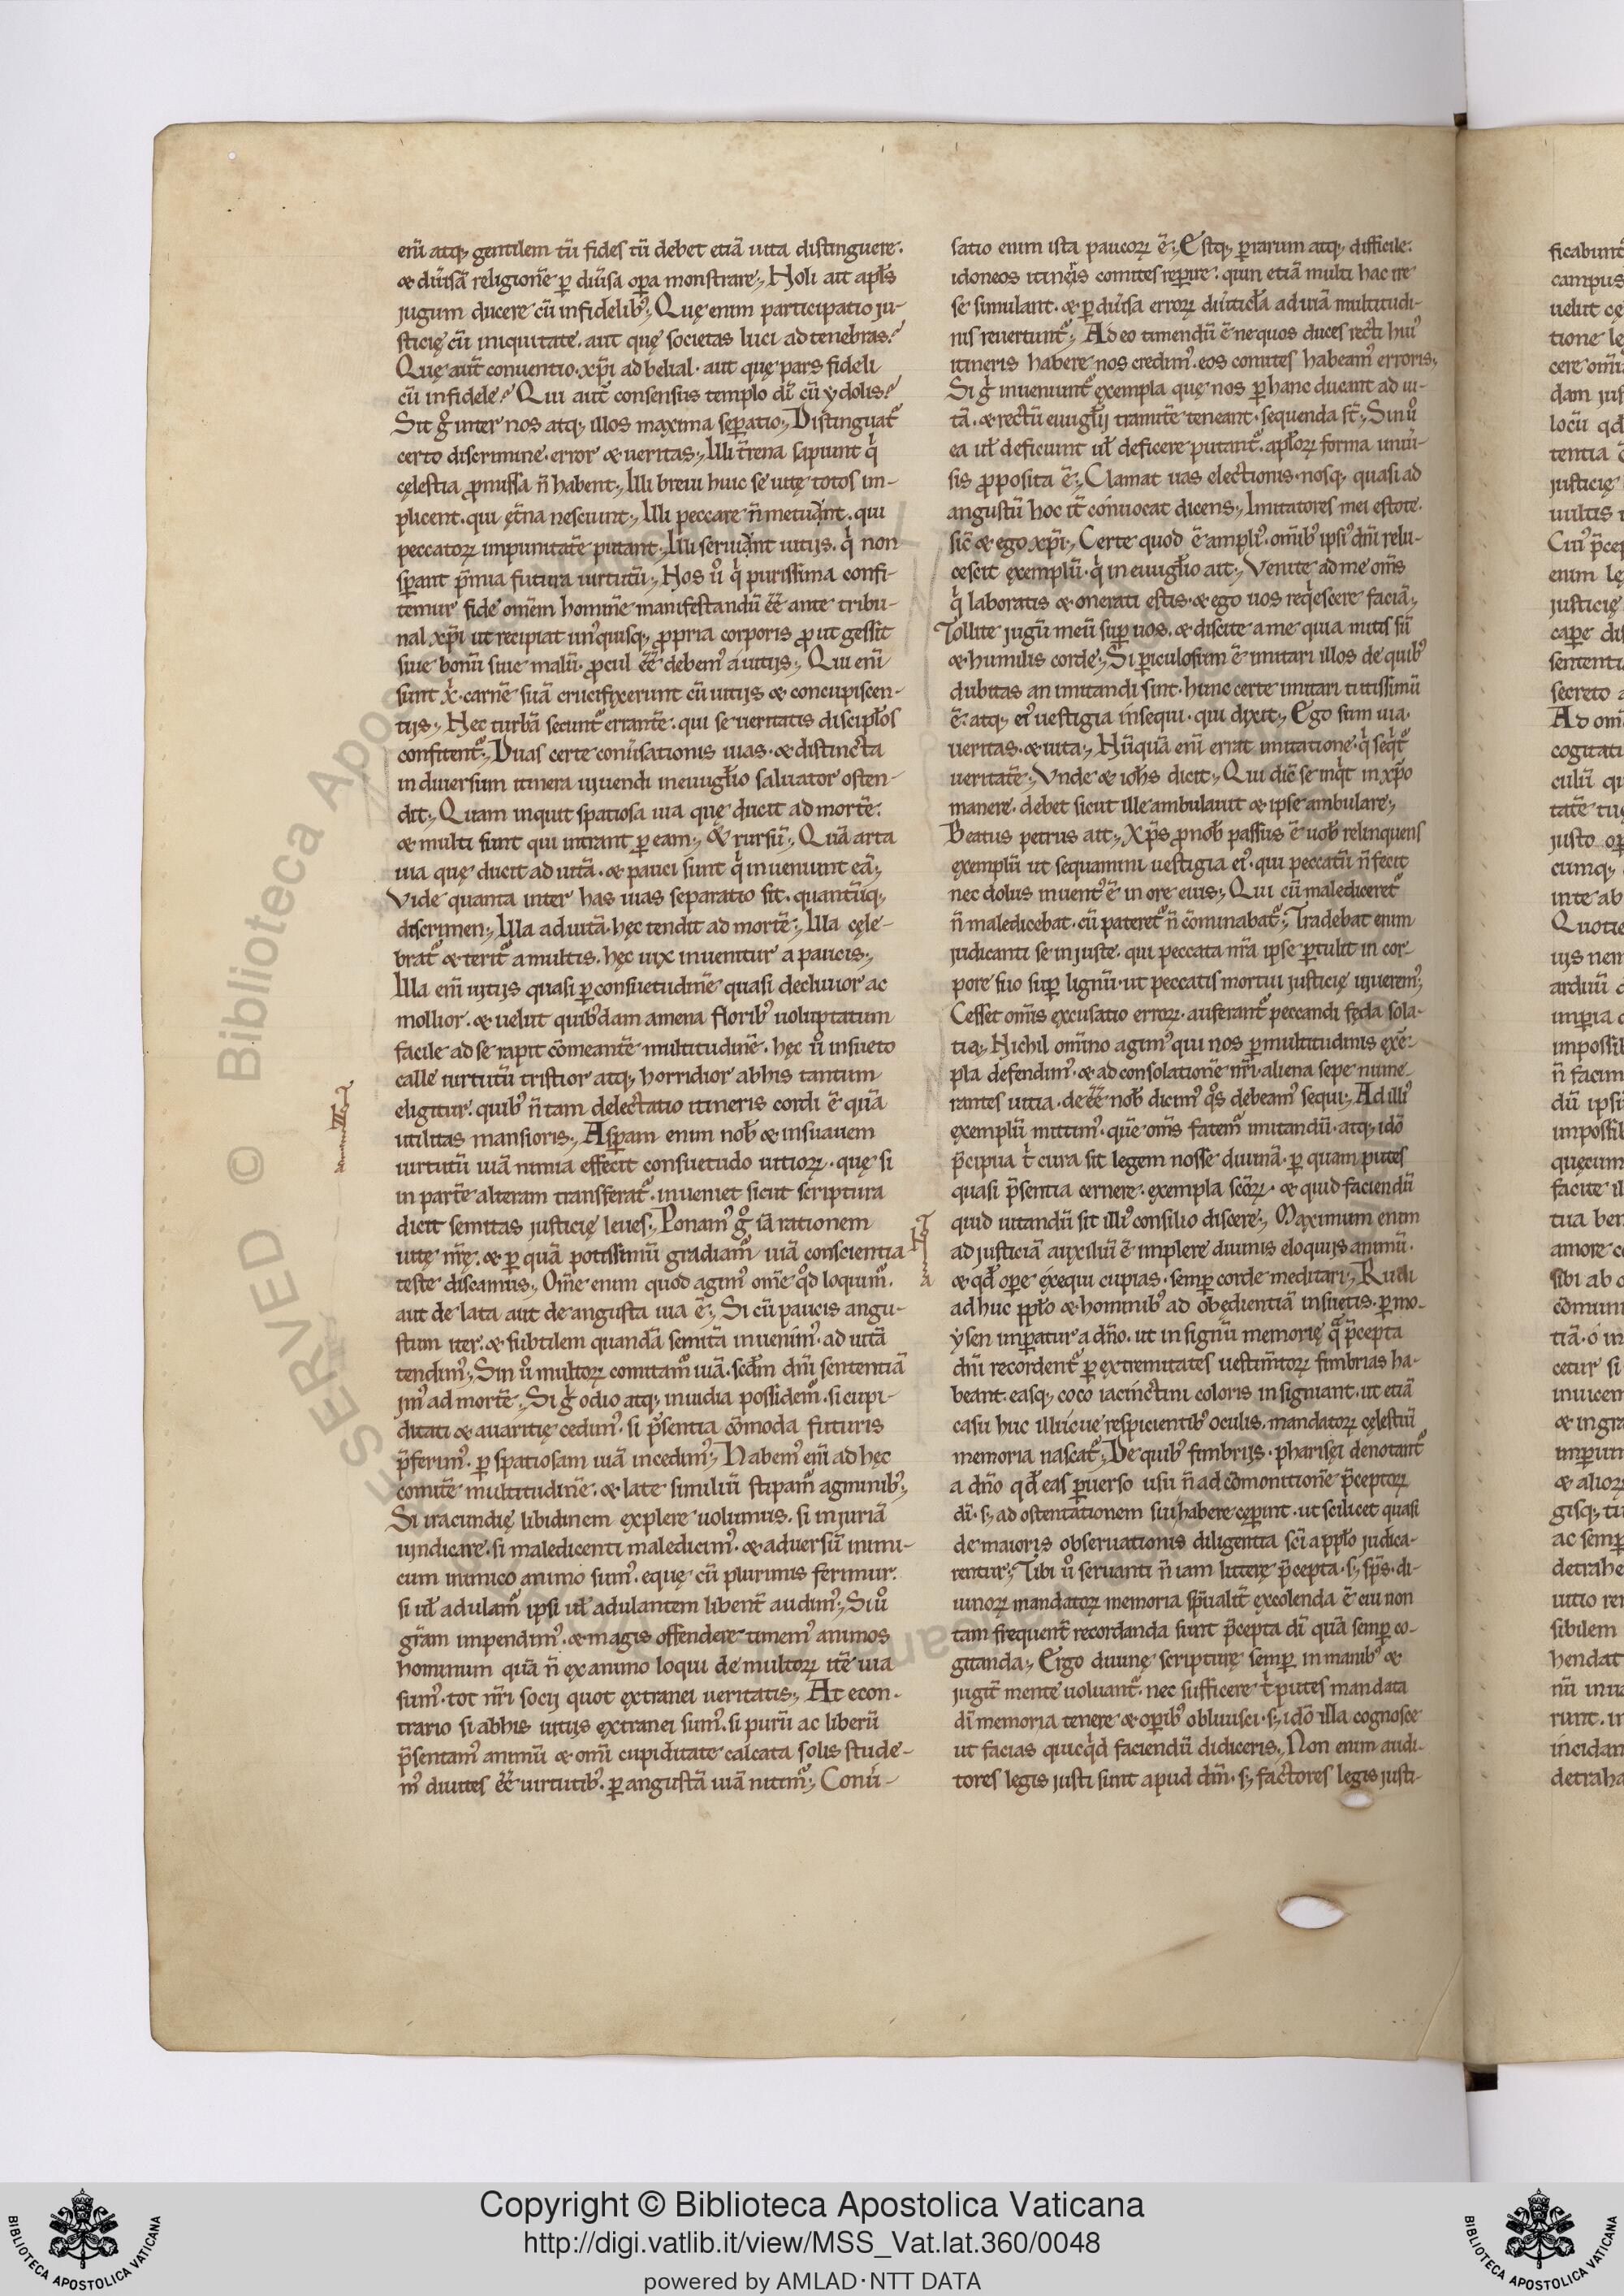 enī atq; gentilem tū fides tū debet etiā uita distinguere.
& diūsā religionē p̄ diūsa opa monstrare; Noli ait apl's
jugum ducere cū infidelib'; Quę enim participatio ju-
sticię cū iniquitate. aut quę societas luci ad tenebras?
Quę aut̄ conuentio xp̄i ad belial. aut quę pars fideli
cū infidele? Qui aut̄ consensus templo dī cū ydolis?
Sit g° inter nos atq; illos maxima sepatio; Distinguat̄
certo discrimine. error & ueritas; Illi t̄rena sapiunt q
cęlestia pmissa n̄ habent; Illi breui huic se uitę totos im-
plicent. qui ęt̄na nesciunt; Illi peccare n̄ metuant. qui
peccatoꝝ impunitatē putant; Illi seruiant uitijs. q non
spant p̄mia futura uirtutū; Nos ů q purissima confi-
temur fide omēm hominē manifestandū ēē ante tribu-
nal xp̄i ut recipiat un'quisq; ppria corporis put gessit
siue bonū siue malū. pcul ēē debem' a uitijs; Qui enī
sunt x̄. carnē suā crucifixerunt cū uitijs & concupiscen-
tijs; Nec turbā secunt̄ errantē. qui se ueritatis discipl'os
confitent̄; Duas certe conūsationis uias. & distincta
in diuersum itinera uiuendi in euuigl'io saluator osten-
dit; Quam inquit spatiosa uia quę ducit ad mortē.
& multi sunt qui intrant p eam; & rursū; Quā arta
uia quę ducit ad uitā. & pauci sunt q inueniunt eā;
Vide quanta inter has uias separatio sit. quantūq;
discrimen; Illa ad uitā. hęc tendit ad mortē; Illa cęle-
brat̄ & terit̄ a multis. hęc uix inuenitur a paucis;
Illa enī uitijs quasi p consuetudinē quasi decliuior ac
mollior. & uelut quib'dam amena florib' uoluptatum
facile ad se rapit cōmeantē multitudinē. hęc ů insueto
calle uirtutū tristior atq; horridior ab his tantum
eligitur. quib' n̄ tam delectatio itineris cordi ē quā
utilitas mansioris; Aspam enim nob & insuauem
uirtutū uiā nimia effecit consuetudo uitioꝝ. quę si
in partē alteram transferat̄. inueniet sicut scriptura
dicit semitas justicię leues; Ponam' g° iā rationem
uitę nr̄ę. & p quā potissimū gradiam̄ uiā conscientia
teste discamus; Om̄e enim quod agim' om̄e qd loquim̄.
aut de lata aut de angusta uia ē; Si cū paucis angu-
stum iter. & subtilem quandā semitā inuenim'. ad uitā
tendim'; Sin ů multoꝝ comitam̄ uiā. scdm dn̄i sententiā
jm' ad mortē; Si g odio atq; inuidia possidem̄. si cupi-
ditati & auaritię cedim'. si p̄sentia cōmoda futuris
p̄ferim'. p spatiosam uiā incedim'; Habem' enī ad hęc
comitē multitudinē. & late similiū stipam̄ agminib';
Si iracundię libidinem explere uolumus. si injuriā
uindicare. si maledicenti maledicim'. & aduersū inimi-
cum inimico animo sum'. eque cū plurimis ferimur.
si ul' adulam̄ ipsi ul' adulantem libent̄ audim'; Si ů
gr̄am impendim'. & magis offendere timem' animos
hominum quā n̄ ex animo loqui de multoꝝ itē uia
sum'. tot nr̄i socij quot extranei ueritatis; At econ-
trario si ab his uitijs extranei sum'. si purū ac liberū
p̄sentam' animū & omī cupiditate calcata solis stude-
m' diuites ēē uirtutib'. p angustā uiā nitim̄; Conū-
satio enim ista paucoꝝ ē; Estq; prarum atq; difficile.
idoneos itineris comites repire. quin etiā multi hac ire
se simulant. & p diūsa erroꝝ diuticl'a ad uiā multitudi-
nis reuertunt̄; Adeo timendū ē ne quos duces recti hui'
itineris habere nos credim'. eos comites habeam' erroris;
Si g inueniunt̄ exempla quę nos p hanc ducant ad ui-
tā. & rectū euuigl'ij tramitē teneant. sequenda st̄; Sin ů
ea ul' deficiunt ul' deficere putant̄. apl'oꝝ forma uniū-
sis pposita ē; Clamat uas electionis. nosq; quasi ad
angustū hoc it̄ conuocat dicens; Imitatores mei estote.
sic̄ & ego xp̄i; Certe quod ē ampli'. omib' ipsi' dn̄i relu-
cescit exemplū. q in euuigl'io ait; Venite ad me om̄s
q laboratis & onerati estis. & ego uos reqescere faciā;
Tollite jugū meū sup uos. & discite a me quia mitis sū
& humilis corde; Si piculosum ē imitari illos de quib'
dubitas an imitandi sint. hunc certe imitari tutissimū
ē. atq; ei' uestigia insequi. qui dixit; Ego sum uia.
ueritas. & uita; Nūquā enī errat imitatione. q seqt̄
ueritatē; Vnde & ioh's dicit; Qui dic̄ se inqt in xp̄o
manere. debet sicut ille ambulauit & ipse ambulare;
Beatus petrus ait; Xp̄s p nob passus ē uob relinquens
exemplū ut sequamini uestigia ei'. qui peccatū n̄ fecit
nec dolus inuent' ē in ore eius; Qui cū malediceret̄
n̄ maledicebat. cū pateret̄ n̄ cōminabat̄; Tradebat enim
judicanti se injuste. qui peccata nr̄a ipse ptulit in cor-
pore suo sup lignū. ut peccatis mortui justicię uiuerem';
Cesset om̄is excusatio erroꝝ. auferant̄ peccandi fęda sola-
tia; Nichil omīno agim' qui nos p multitudinis exē-
pla defendim'. & ad consolationē nr̄i. aliena sepe nume-
rantes uitia. deēē nob dicim' qs debeam' sequi; Ad illi'
exemplū mittim'. quē om̄s fatem̄ imitandū. atq; idō
p̄cipua t cura sit legem nosse diuinā. p quam putes
quasi p̄sentia cernere. exempla sc̄oꝝ. & quid faciendū
quid uitandū sit illi' consilio discere; Maximum enim
ad justiciā auxiliū ē implere diuinis eloquijs animū.
& qd ope exequi cupias. semp corde meditari; Rudi
adhuc ppl'o & hominib' ad obędientiā insuetis. p mo-
ysen impatur a dn̄o. ut in signū memorię q p̄cepta
dn̄i recordent̄ p extremitates uestim̄toꝝ fimbrias ha-
beant. easq; coco iacinctini coloris insigniant. ut etiā
casu huc illucue respicientib' oculis. mandatoꝝ cęlestiū
memoria nascat̄; De quib' fimbrijs. pharisei denotant̄
a dn̄o qd eas puerso usu n̄ ad cōmonitionē p̄ceptoꝝ
dī. s; ad ostentationem sui habere cępint. ut scilicet quasi
de maioris obseruationis diligentia sc̄i a ppl'o judica-
rentur; Tibi ů seruanti n̄ iam litterę p̄cepta. s; sp̄s. di-
uinoꝝ mandatoꝝ memoria sp̄ualit̄ excolenda ē cui non
tam frequent̄ recordanda sunt p̄cepta dī quā semp co-
gitanda; Ergo diuinę scripturę semp in manib' &
jugit̄ mente uoluant̄. nec sufficere t putes mandata
dī memoria tenere & opib' obliuisci. s; idō illa cognosce
ut facias quicqd faciendū didiceris; Non enim audi-
tores legis justi sunt apud dm̄. s; factores legis justi-
ficabunt
campus
uelut
tione
cere
dam
tentia
justicię
enim
justicię
sententi
secreto
cogitati
culū
justo
cumq;
inte ab
Quotie
arduū
n̄ facim
dū ipsū
quęcum
facite
tua
amore
sibi ab
cōmun
cetur si
inuicem
& ingra
ac semp
detrahe
sibilem
hendat
runt
incidan
detraha
SERVED © Biblioteca Apos
Copyright © Biblioteca Apostolica Vaticana
http://digi.vatlib.it/view/MSS_Vat.lat.360/0048
powered by AMLAD·NTT DATA
BIBLIOTECA APOSTOLICA VATICANA
BIBLIOTECA APOSTOLICA VATICANA